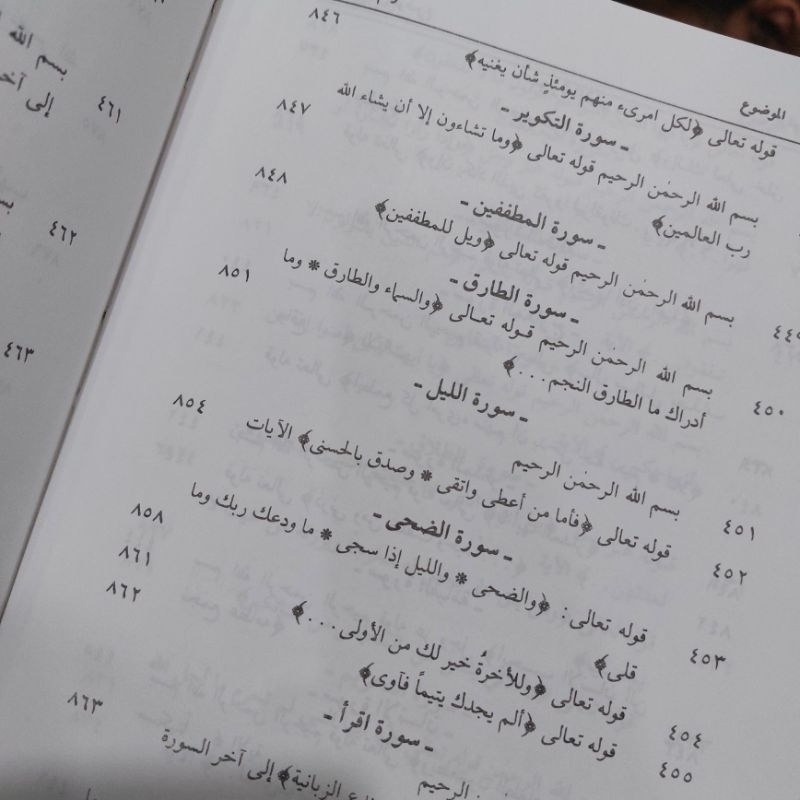 الموضوع
قوله تعالى ﴿لكل امرىء منهم يومئذٍ شأن يغنيه﴾ ٨٤٦
ـ سورة التكوير ـ
بسم الله الرحمٰن الرحيم قوله تعالى ﴿وما تشاءون إلا أن يشاء الله ٨٤٧
رب العالمين﴾
ـ سورة المطففين ـ
٤٤٩ بسم الله الرحمٰن الرحيم قوله تعالى ﴿ويل للمطففين﴾ ٨٤٨
ـ سورة الطارق ـ
٤٥٠ بسم الله الرحمٰن الرحيم قوله تعالى ﴿والسماء والطارق * وما ٨٥١
أدراك ما الطارق النجم...﴾
ـ سورة الليل ـ
٤٥١ بسم الله الرحمٰن الرحيم
٤٥٢ قوله تعالى ﴿فأما من أعطى واتقى * وصدق بالحسنى﴾ الآيات ٨٥٤
ـ سورة الضحى ـ
٤٥٣ قوله تعالى: ﴿والضحى * والليل إذا سجى * ما ودعك ربك وما ٨٥٨
قلى﴾
٤٥٤ قوله تعالى ﴿وللأخرةُ خير لك من الأولى...﴾ ٨٦١
٤٥٥ قوله تعالى ﴿ألم يجدك يتيماً فآوى﴾ ٨٦٢
ـ سورة اقرأ ـ
الرحيم
الزبانية﴾ إلى آخر السورة ٨٦٣
بسم الله
٤٦١ إلى آخر
٤٦٢
٤٦٣